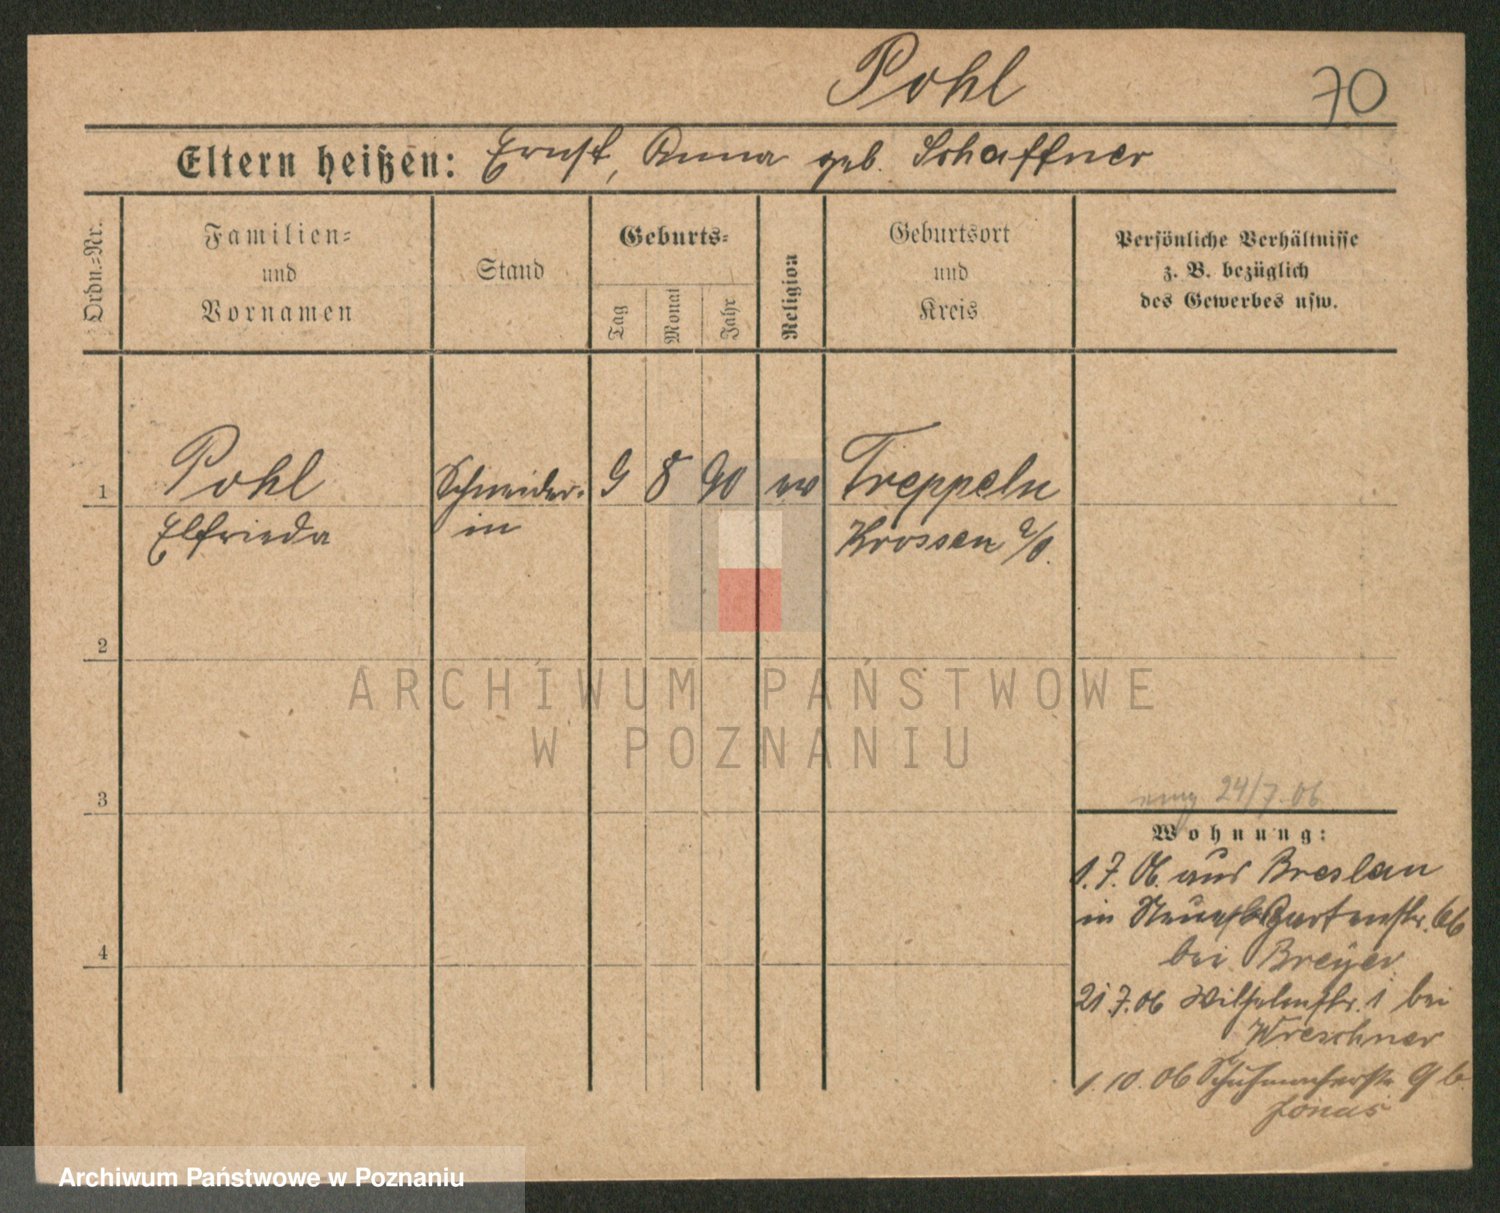 Pohl
70
Eltern heißen: Ernst, Anna geb. Schaffner
Ordn.-Nr.
Familien-
und
Vornamen
Stand
Geburts-
Tag
Monat
Jahr
Religion
Geburtsort
und
Kreis
Persönliche Verhältnisse
z. B. bezüglich
des Gewerbes usw.
1
Pohl
Elfrieda
Schneider-
in
9 8 90 ev
Treppeln
Krossen a/O.
2
ARCHIWUM PAŃSTWOWE
W POZNANIU
3
24/7. 06
Wohnung:
1.7.06. aus Breslau
in Gartenstr. 66
bei Breyer
4
21.7.06 Wilhelmstr. 1 bei
Wreschner
1.10.06 Schuhmacherstr. 9 b.
Jonas
Archiwum Państwowe w Poznaniu